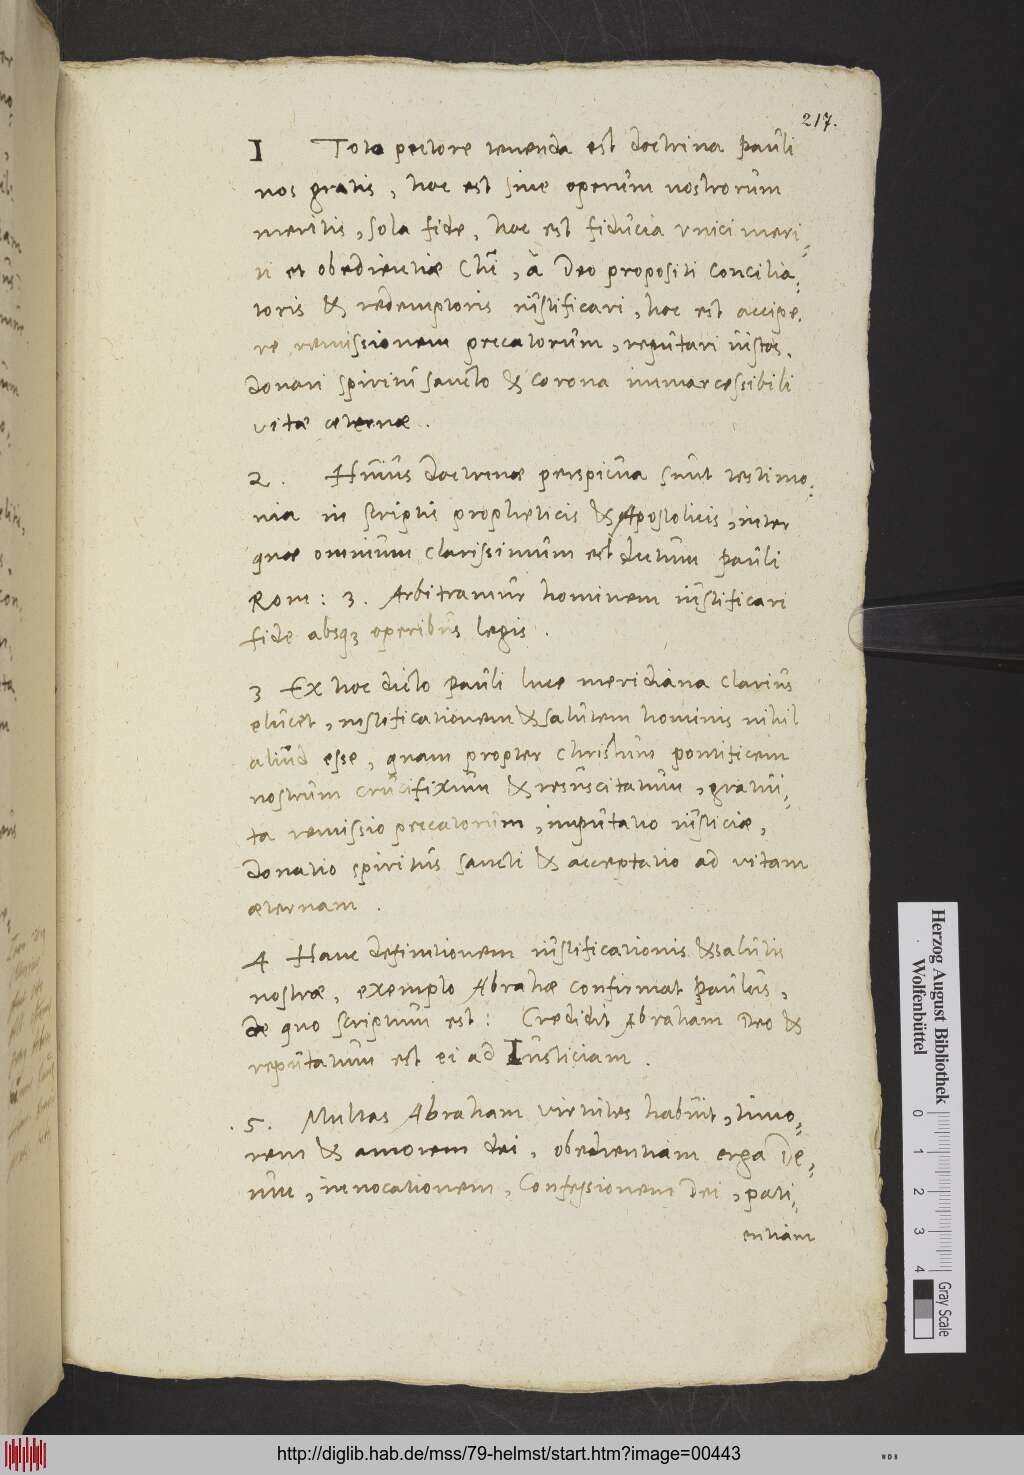 217.
1 Toto pectore tenenda est doctrina Pauli
nos gratis, hoc est sine operum nostrorum
meritis, sola fide, hoc est fiducia vnici meri-
ti et obedientiæ Chri, à Deo propositi Concilia-
toris & redemptoris iustificari, hoc est accipe-
re remissionem peccatorum, reputari iustos,
donari spiritu sancto & corona immarcessibili
vitæ æternæ.
2. Huius doctrinæ perspicua sunt testimo-
nia in scriptis propheticis & Apostolicis, inter
quæ omnium clarissimum est dictum Pauli
Rom: 3. Arbitramur hominem iustificari
fide absq3 operibus legis.
3 Ex hoc dicto Pauli luce meridiana clarius
elucet, iustificationem & salutem hominis nihil
aliud esse, quam propter Christum pontificem
nostrum crucifixum & resuscitatum, gratui-
ta remissio peccatorum, imputatio iusticiæ,
donatio spiritus sancti & acceptatio ad vitam
æternam.
4 Hanc definitionem iustificationis & salutis
nostræ, exemplo Abrahæ confirmat Paulus,
de quo scriptum est: Credidit Abraham Deo &
reputatum est ei ad Iusticiam.
5. Multas Abraham virtutes habuit, timo-
rem & amorem dei, obedientiam erga De-
um, inuocationem, Confessionem Dei, pati-
entiam
Herzog August Bibliothek
Wolfenbüttel
0 1 2 3 4
Gray Scale
http://diglib.hab.de/mss/79-helmst/start.htm?image=00443